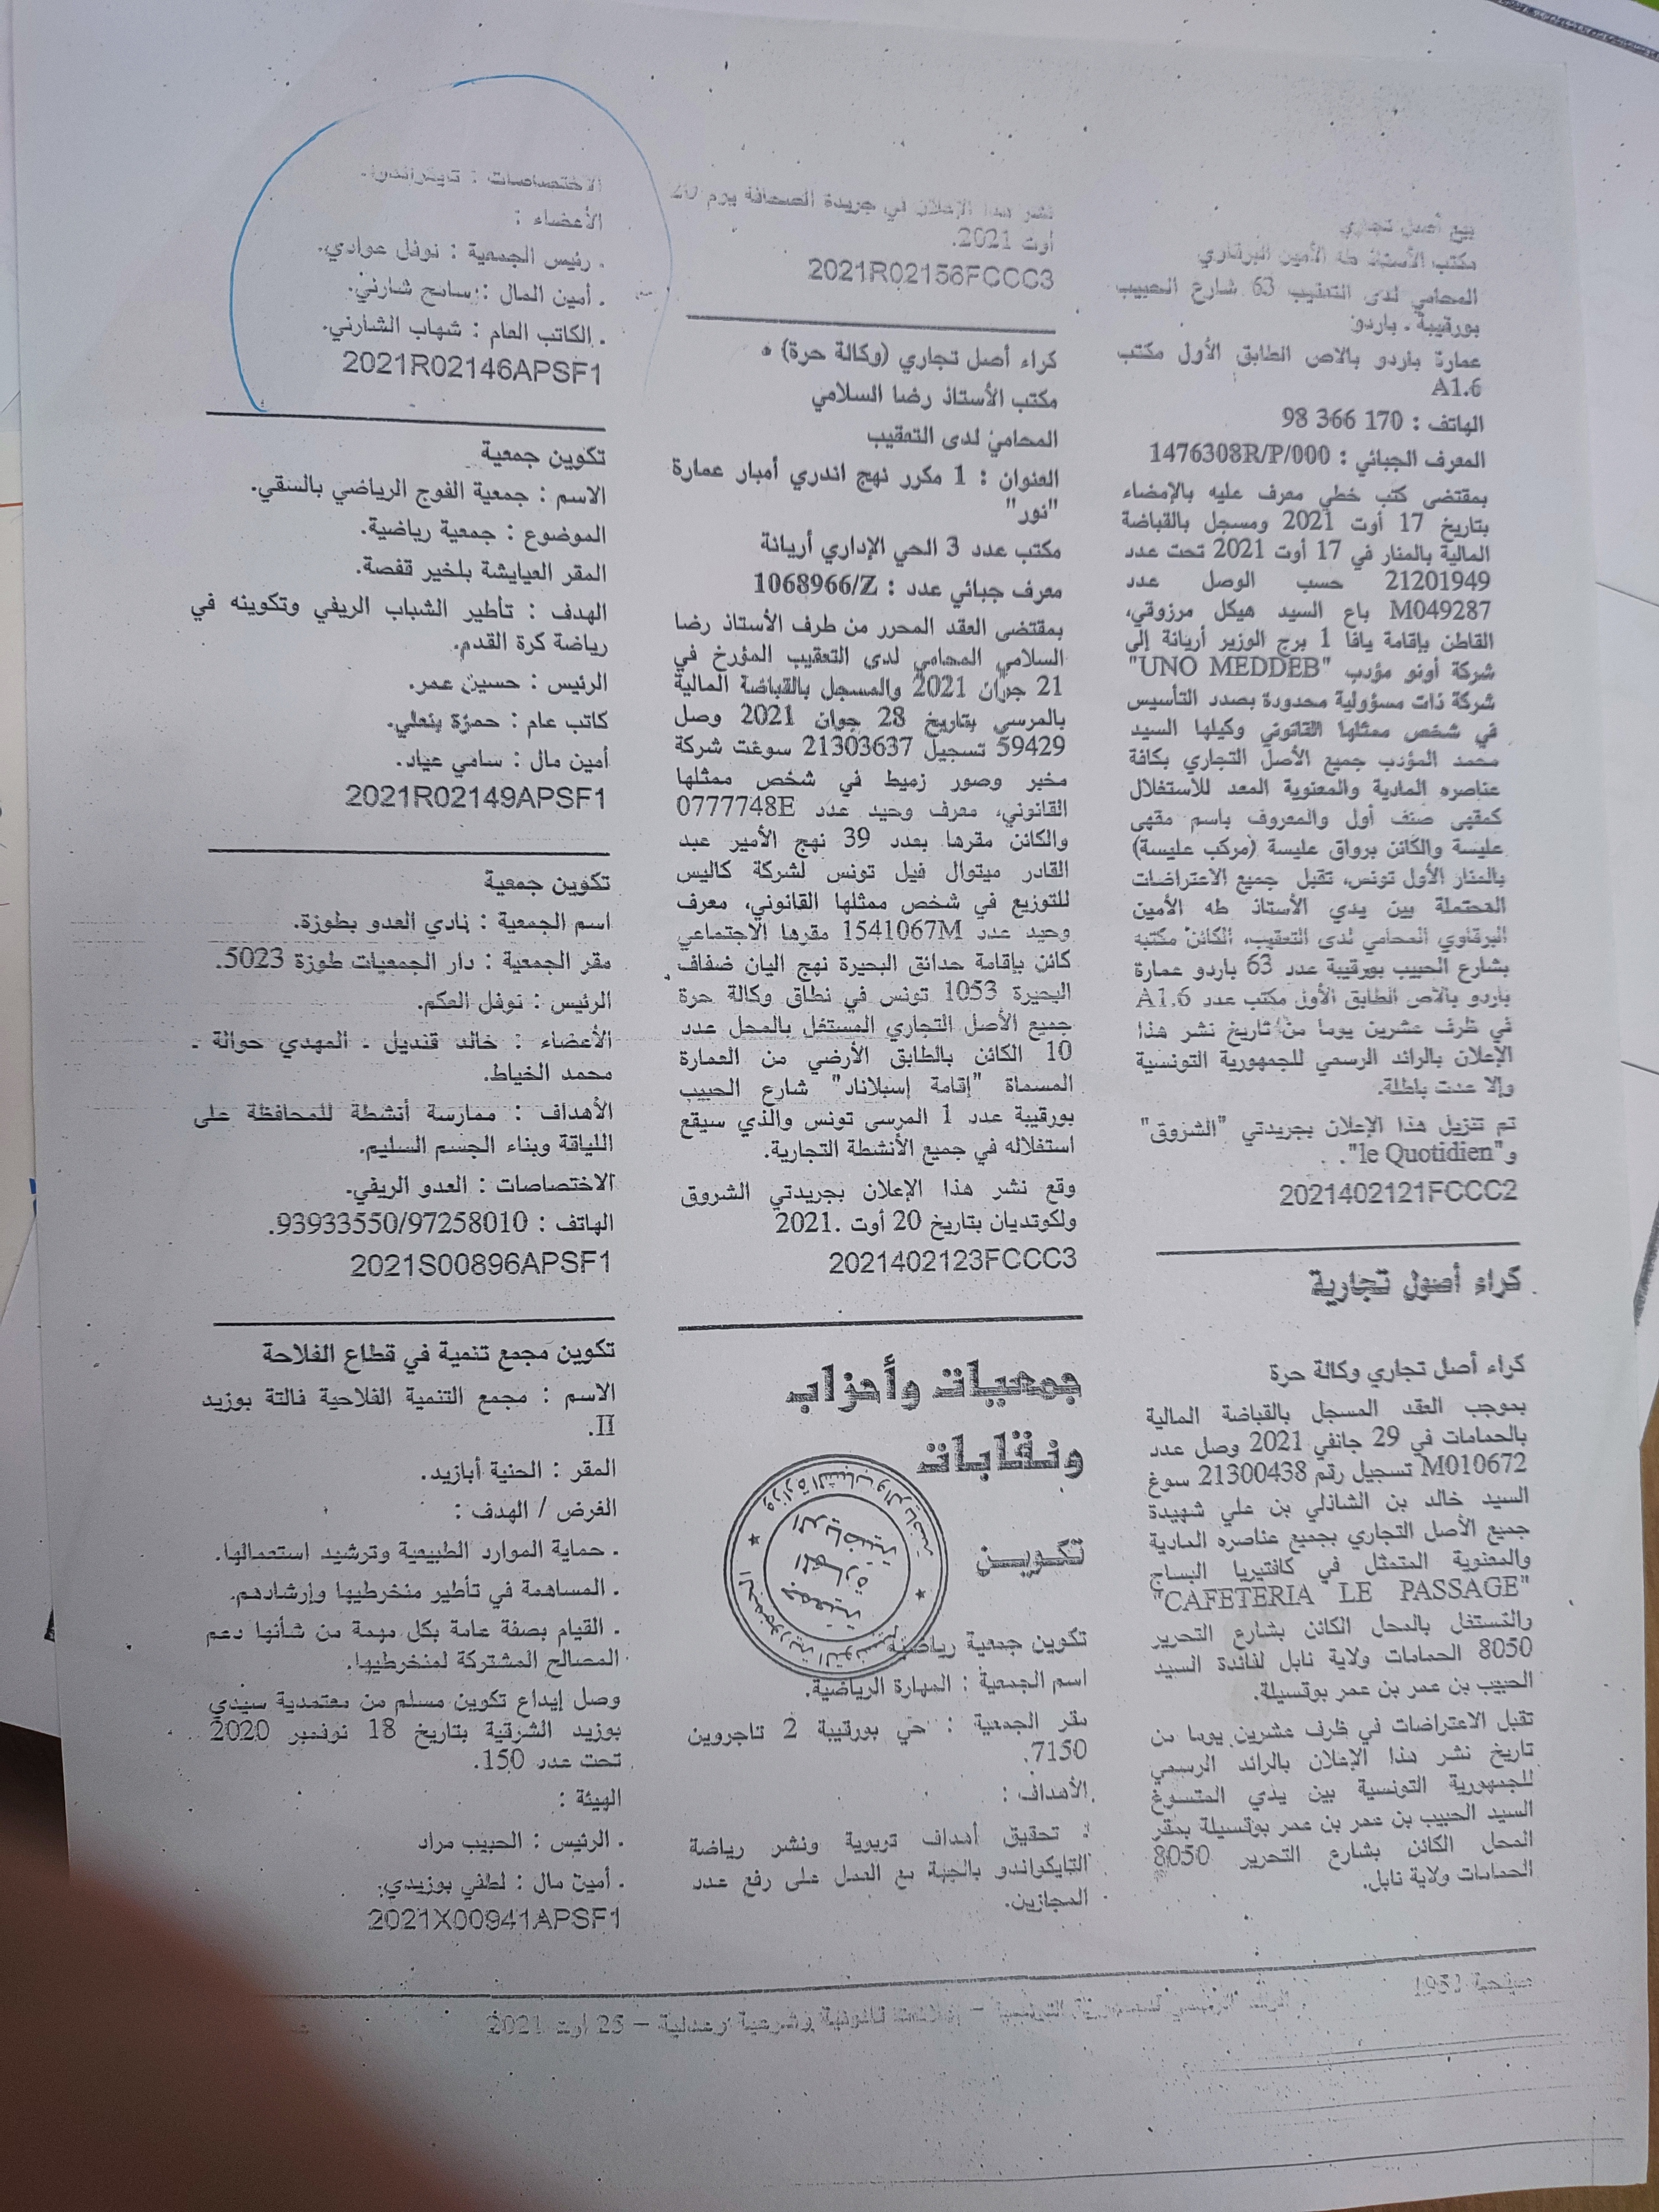 بيع أصل تجاري
مكتب الأستاذ طه الأمين البرقاوي
المحامي لدى التعقيب 63 شارع الحبيب
بورقيبة ـ باردو
عمارة باردو بالاص الطابق الأول مكتب
A1.6
الهاتف : 170 366 98
المعرف الجبائي : 1476308R/P/000
بمقتضى كتب خطي معرف عليه بالإمضاء
بتاريخ 17 أوت 2021 ومسجل بالقباضة
المالية بالمنار في 17 أوت 2021 تحت عدد
21201949 حسب الوصل عدد
M049287 باع السيد هيكل مرزوقي،
القاطن بإقامة يافا 1 برج الوزير أريانة إلى
شركة أونو مؤدب "UNO MEDDEB"
شركة ذات مسؤولية محدودة بصدد التأسيس
في شخص ممثلها القانوني وكيلها السيد
محمد المؤدب جميع الأصل التجاري بكافة
عناصره المادية والمعنوية المعد للاستغلال
كمقهى صنف أول والمعروف باسم مقهى
عليسة والكائن برواق عليسة (مركب عليسة)
بالمنار الأول تونس، تقبل جميع الاعتراضات
المحتملة بين يدي الأستاذ طه الأمين
البرقاوي المحامي لدى التعقيب، الكائن مكتبه
بشارع الحبيب بورقيبة عدد 63 باردو عمارة
باردو بالاص الطابق الأول مكتب عدد A1.6
في ظرف عشرين يوما من تاريخ نشر هذا
الإعلان بالرائد الرسمي للجمهورية التونسية
وإلا عدت باطلة.
تم تنزيل هذا الإعلان بجريدتي "الشروق"
و"le Quotidien".
2021402121FCCC2
كراء أصول تجارية
كراء أصل تجاري وكالة حرة
بموجب العقد المسجل بالقباضة المالية
بالحمامات في 29 جانفي 2021 وصل عدد
M010672 تسجيل رقم 21300438 سوغ
السيد خالد بن الشاذلي بن علي شهيدة
جميع الأصل التجاري بجميع عناصره المادية
والمعنوية المتمثل في كافتيريا البساج
"CAFETERIA LE PASSAGE"
والمستغل بالمحل الكائن بشارع التحرير
8050 الحمامات ولاية نابل لفائدة السيد
الحبيب بن عمر بن عمر بوقسيلة.
تقبل الاعتراضات في ظرف عشرين يوما من
تاريخ نشر هذا الإعلان بالرائد الرسمي
للجمهورية التونسية بين يدي المتسوغ
السيد الحبيب بن عمر بن عمر بوقسيلة بمقر
المحل الكائن بشارع التحرير 8050
الحمامات ولاية نابل.
نشر هذا الإعلان في جريدة الصحافة يوم 20
أوت 2021.
2021R02156FCCC3
كراء أصل تجاري (وكالة حرة)
مكتب الأستاذ رضا السلامي
المحامي لدى التعقيب
العنوان : 1 مكرر نهج اندري أمبار عمارة
"نور"
مكتب عدد 3 الحي الإداري أريانة
معرف جبائي عدد : 1068966/Z
بمقتضى العقد المحرر من طرف الأستاذ رضا
السلامي المحامي لدى التعقيب المؤرخ في
21 جوان 2021 والمسجل بالقباضة المالية
بالمرسى بتاريخ 28 جوان 2021 وصل
59429 تسجيل 21303637 سوغت شركة
مخبر وصور زميط في شخص ممثلها
القانوني، معرف وحيد عدد 0777748E
والكائن مقرها بعدد 39 نهج الأمير عبد
القادر ميتوال فيل تونس لشركة كاليس
للتوزيع في شخص ممثلها القانوني، معرف
وحيد عدد 1541067M مقرها الاجتماعي
كائن بإقامة حدائق البحيرة نهج اليان ضفاف
البحيرة 1053 تونس في نطاق وكالة حرة
جميع الأصل التجاري المستغل بالمحل عدد
10 الكائن بالطابق الأرضي من العمارة
المسماة "إقامة إسبلاناد" شارع الحبيب
بورقيبة عدد 1 المرسى تونس والذي سيقع
استغلاله في جميع الأنشطة التجارية.
وقع نشر هذا الإعلان بجريدتي الشروق
ولكوتديان بتاريخ 20 أوت .2021
2021402123FCCC3
جمعيات وأحزاب
ونقابات
تكوين
تكوين جمعية رياضية
اسم الجمعية : المهارة الرياضية.
مقر الجمعية : حي بورقيبة 2 تاجروين
7150.
الأهداف :
. تحقيق أهداف تربوية ونشر رياضة
التايكواندو بالجهة مع العمل على رفع عدد
المجازين.
الاختصاصات : تايكواندو.
الأعضاء :
. رئيس الجمعية : نوفل عوادي.
. أمين المال : سامح شارني.
. الكاتب العام : شهاب الشارني.
2021R02146APSF1
تكوين جمعية
الاسم : جمعية الفوج الرياضي بالسقي.
الموضوع : جمعية رياضية.
المقر العيايشة بلخير قفصة.
الهدف : تأطير الشباب الريفي وتكوينه في
رياضة كرة القدم.
الرئيس : حسين عمر.
كاتب عام : حمزة بنعلي.
أمين مال : سامي عياد.
2021R02149APSF1
تكوين جمعية
اسم الجمعية : نادي العدو بطوزة.
مقر الجمعية : دار الجمعيات طوزة 5023.
الرئيس : نوفل العكم.
الأعضاء : خالد قنديل ـ المهدي حوالة ـ
محمد الخياط.
الأهداف : ممارسة أنشطة للمحافظة على
اللياقة وبناء الجسم السليم.
الاختصاصات : العدو الريفي.
الهاتف : 93933550/97258010.
2021S00896APSF1
تكوين مجمع تنمية في قطاع الفلاحة
الاسم : مجمع التنمية الفلاحية فالتة بوزيد
II.
المقر : الحنية أبازيد.
الغرض / الهدف :
. حماية الموارد الطبيعية وترشيد استعمالها.
. المساهمة في تأطير منخرطيها وإرشادهم.
. القيام بصفة عامة بكل مهمة من شأنها دعم
المصالح المشتركة لمنخرطيها.
وصل إيداع تكوين مسلم من معتمدية سيدي
بوزيد الشرقية بتاريخ 18 نوفمبر 2020
تحت عدد 150.
الهيئة :
. الرئيس : الحبيب مراد
. أمين مال : لطفي بوزيدي.
2021X00941APSF1
صفحة
الرائد الرسمي للجمهورية التونسية – إعلانات قانونية وشرعية وعدلية – 25 أوت 2021